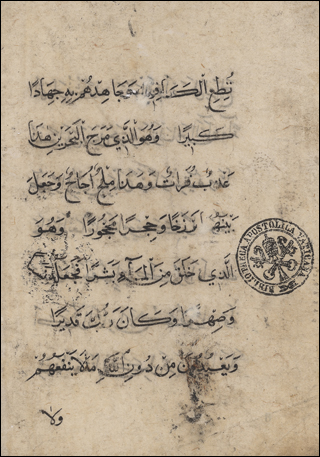 تُطِعِ الْكَافِرِينَ وَجَاهِدْهُمْ بِهِ جِهَادًا
كَبِيرًا وَهُوَ الَّذِي مَرَجَ الْبَحْرَيْنِ هَذَا
عَذْبٌ فُرَاتٌ وَهَذَا مِلْحٌ أُجَاجٌ وَجَعَلَ
بَيْنَهُمَا بَرْزَخًا وَحِجْرًا مَحْجُورًا وَهُوَ
الَّذِي خَلَقَ مِنَ الْمَاءِ بَشَرًا فَجَعَلَهُ
وَصِهْرًا وَكَانَ رَبُّكَ قَدِيرًا
وَيَعْبُدُونَ مِنْ دُونِ اللَّهِ مَا لَا يَنْفَعُهُمْ
ولا
BIBLIOTHECA APOSTOLICA VATICANA